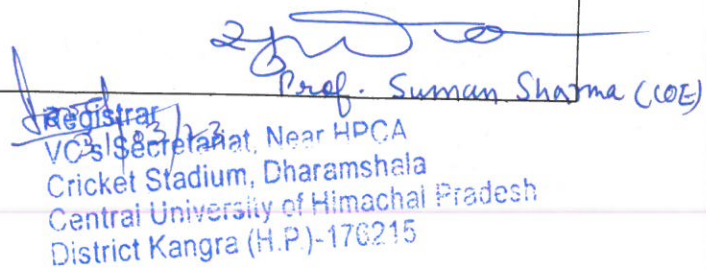 Prof. Suman Sharma (COE)
Registrar
VC's Secretariat, Near HPCA
Cricket Stadium, Dharamshala
Central University of Himachal Pradesh
District Kangra (H.P.)-176215